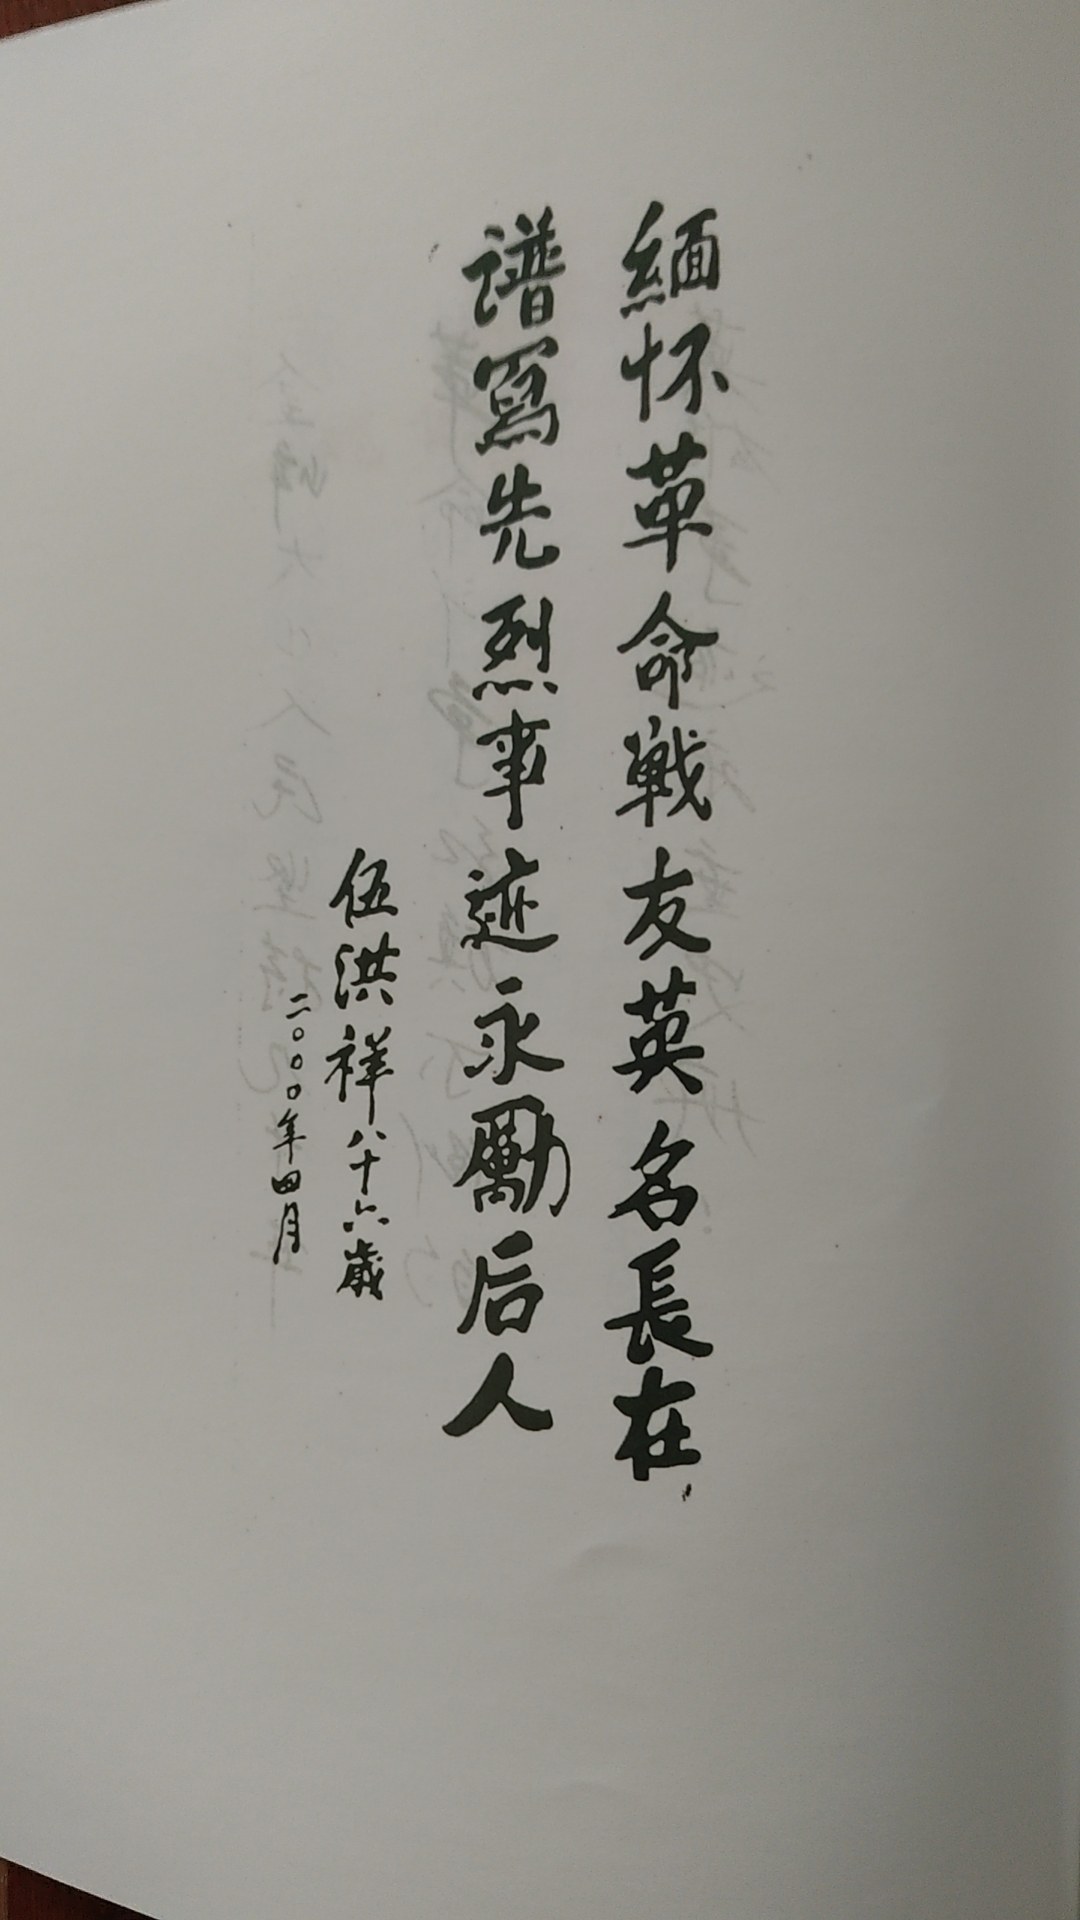 緬怀革命戰友英名長在
谱寫先烈事迹永勵后人
伍洪祥八十六歲
二〇〇〇年四月